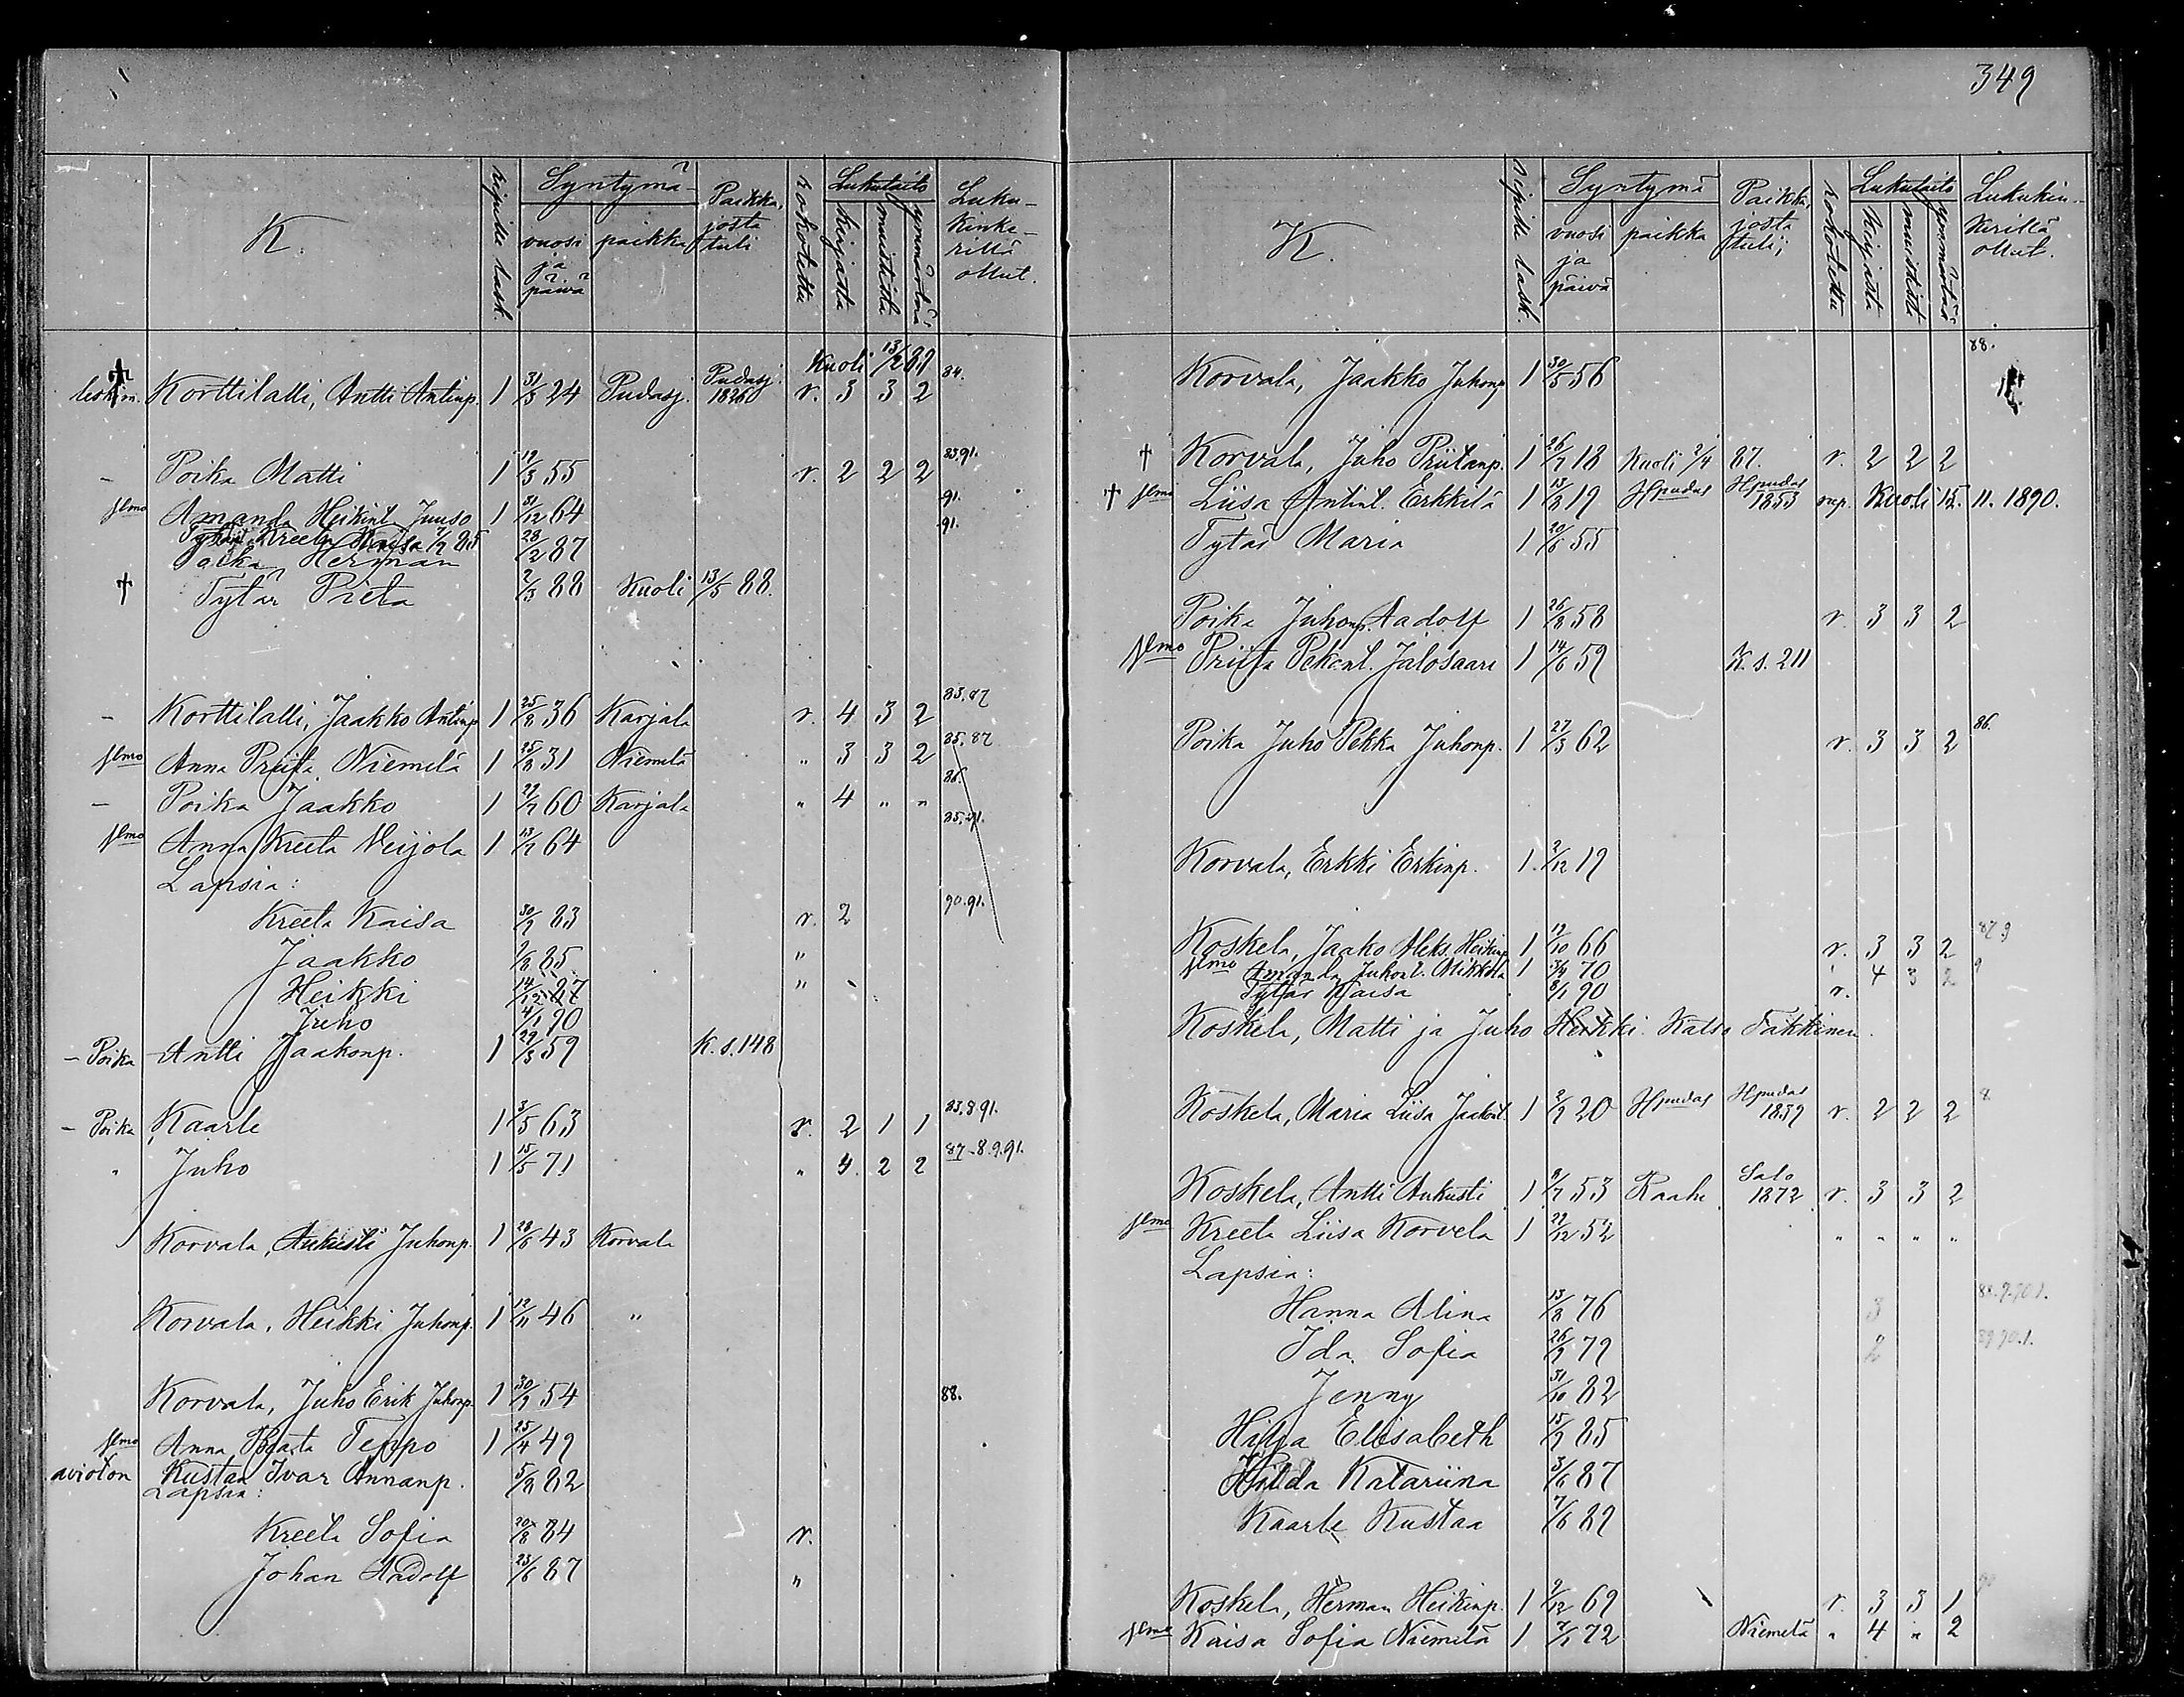 349
K.
ripille lask.
Syntymä-
vuosi ja päivä
paikka
Paikka, josta tuli
rokotettu
Lukutaito
kirjasta
muistista
ymmärtää
Luku-
kinke-
rillä
ollut.
Kuoli 13/2 89
leskim. Korttilalli, Antti Antinp. 1 31/3 24 Pudasj. Pudasj. 1826 r. 3 3 2 84.
- Poika Matti 1 19/3 55 r. 2 2 2 83 91.
vmo Amanda Heikint. Juuso 1 31/12 64 91.
Tytär Kreeta Kaisa 7/9 85 91.
Poika Herman 28/2 87
† Tytär Prita 2/3 88 Kuoli 13/5 88.
- Korttilalli, Jaakko Antinp. 1 25/8 36 Karjala r. 4 3 2 83.87
vmo Anna Priita Niemelä 1 25/8 31 Niemelä " 3 3 2 85.87
- Poika Jaakko 1 27/7 60 Karjala " 4 " " 86.
vmo Anna Kreeta Veijola 1 13/7 64 85.91.
Lapsia:
Kreeta Kaisa 30/9 83 r. 2 90.91.
Jaakko 9/8 85 "
Heikki 14/12 87 "
Juho 4/1 90
- Poika Antti Jaakonp. 1 29/3 59 K. s. 148
- Poika Kaarle 1 3/5 63 r. 2 1 1 83.8 91.
" Juho 1 15/5 71 " 4 2 2 87-8.9.91.
Korvala, Aukusti Juhonp. 1 28/6 43 Korvala
Korvala, Heikki Juhonp. 1 12/11 46 "
Korvala, Juho Erik Juhonp. 1 30/9 54 88.
vmo Anna Beata Teppo 1 25/4 49
avioton Kustaa Ivar Annanp. 5/8 82
Lapsia:
Kreeta Sofia 20/8 84 r.
Johan Aadolf 23/6 87 "
K.
Ripille lask.
Syntymä
vuosi ja päivä
paikka
Paikka, josta tuli;
rokotettu
Lukutaito
kirjasta
muistista
ymmärtää
Lukukin-
kerillä
ollut.
Korvala, Jaakko Juhonp. 1 30/5 56 88.
† Korvala, Juho Priitanp. 1 26/7 18 Kuoli 2/4 87. r. 2 2 2
† vmo Liisa Antint. Erkkilä 1 13/8 19 Hpudas Hpudas 1853 rup. Kuoli 15. 11. 1890.
Tytär Maria 1 20/6 55
Poika Juhonp. Aadolf 1 26/8 58 r. 3 3 2
vmo Priita Pekant. Jalosaari 1 14/6 59 K. s. 211
Poika Juho Pekka Juhonp. 1 27/3 62 r. 3 3 2 86.
Korvala, Erkki Erkinp. 1. 2/12 19
Koskela, Jaako Aleks. Heikinp. 1 19/10 66 r. 3 3 2 87 9
vmo Amanda Juhont. Mikkola 1 3/4 70 " 4 3 2 9
Tytär Kaisa 8/1 90 r.
Koskela, Matti ja Juho Heikki. Katso Takkinen.
Koskela, Maria Liisa Jaakont. 1 2/9 20 Hpudas Hpudas 1839 r. 2 2 2 8
Koskela, Antti Aukusti 1 8/7 53 Raahe Salo 1872 r. 3 3 2
vmo Kreeta Liisa Korvela 1 29/12 52 " " " "
Lapsia:
Hanna Alina 13/8 76 3 88.9.90.1.
Ida Sofia 26/9 79 2 89 90.1.
Jenny 31/10 82
Hilja Elisabeth 15/9 85
Hilda Katariina 3/6 87
Kaarle Kustaa 7/6 89
Koskela, Herman Heikinp. 1 9/12 69 r. 3 3 1
vmo Kaisa Sofia Niemelä 1 7/1 72 Niemelä " 4 " 2